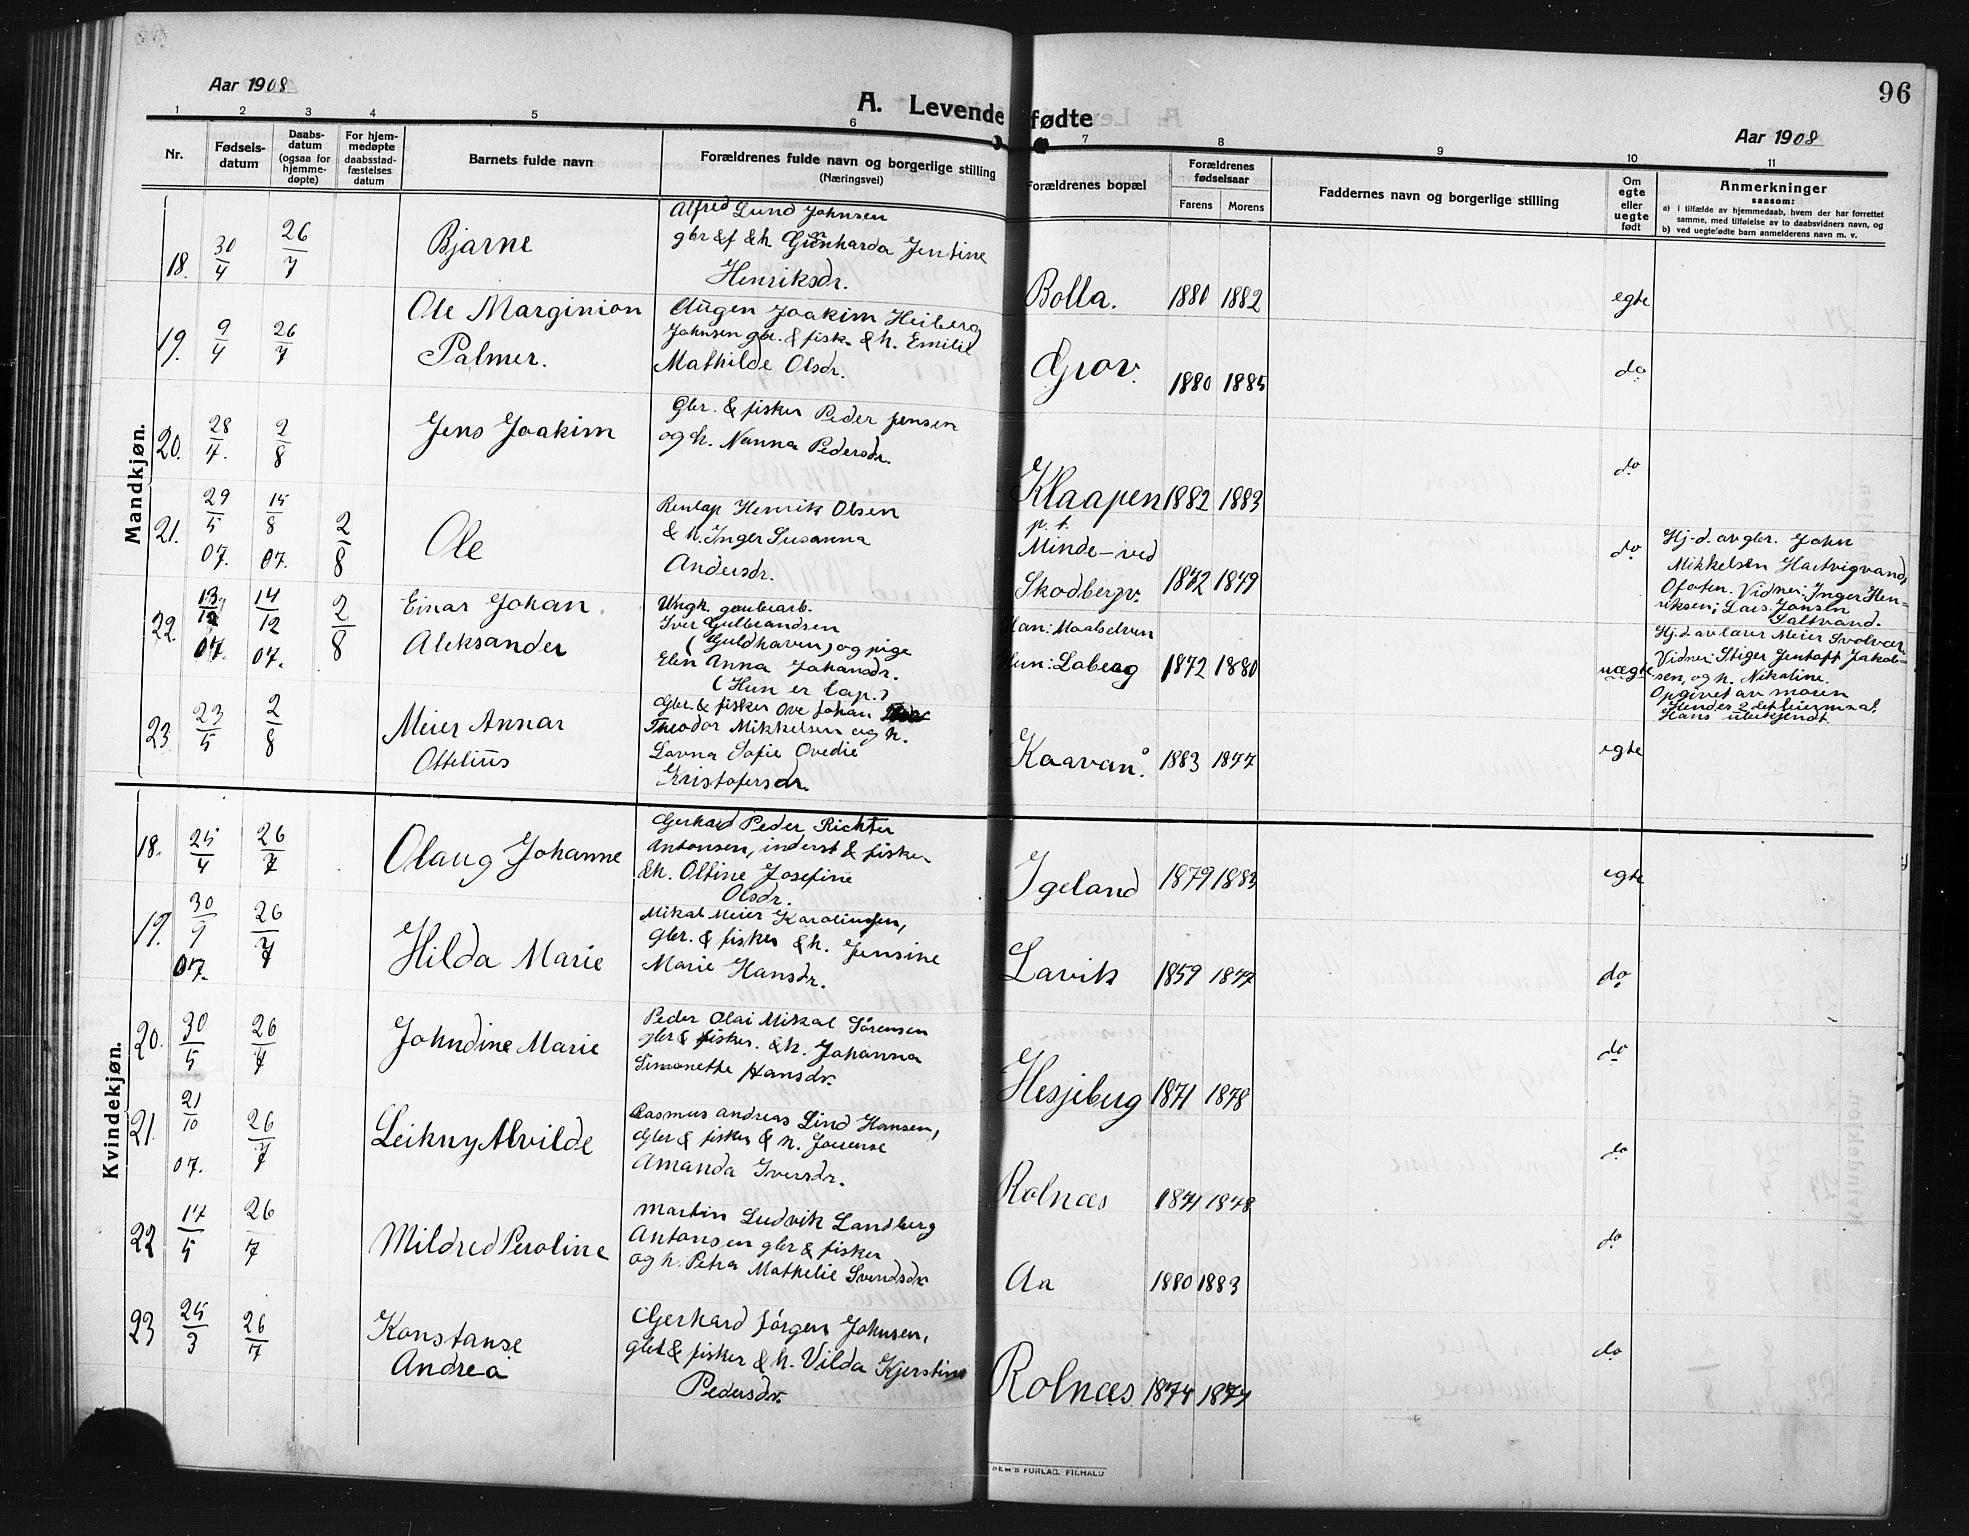 96
Aar 1908
A. Levende fødte
Aar 1908
1 2 3 4 5 6 7 8 9 10 11
Nr.
Fødsels-
datum
Daabs-
datum
(ogsaa for
hjemme-
døpte)
For hjem-
medøpte
daabsstad-
fæstelses
datum
Barnets fulde navn
Forældrenes fulde navn og borgerlige stilling
(Næringsvei)
Forældrenes bopæl
Forældrenes
fødselsaar
Farens Morens
Faddernes navn og borgerlige stilling
Om
egte
eller
uegte
født
Anmerkninger
saasom:
a) i tilfælde av hjemmedaab, hvem der har forrettet
samme, med tilføielse av to daabsvidners navn, og
b) ved uegtefødte barn anmelderens navn m. v.
Mandkjøn.
18. 30/4 26/7 Bjarne
Alfred Lund Johnsen
gbr & f & h. Gunharda Jentine
Henriksdr.
Bolla. 1880 1882 egte
19. 9/4 26/7 Ole Marginion
Palmer.
Augen Joakim Heiberg
Johnsen gbr. & fisk. & h. Emilie
Mathilde Olsdr.
Grov. 1880 1885 do
20. 28/7. 2/8 Jens Joakim
Gbr. & fisker Peder Jensen
og h. Nanna Pedersdr.
Klaapen 1882 1883 do
21. 29/5 07. 15/8 07. 2/8 Ole
Renlap Henrik Olsen
& h. Inger Susanna
Andersdr.
p. t.
Minde - ved
Skodbergv. 1872 1879 do
Hj-d. av gbr. John
Mikkelsen Hartvigvand,
Ofoten. Vidner: Inger Hen-
riksen; Lars Jonsen
Saltvand.
22. 13/12 07. 14/12 07. 2/8 Einar Johan
Aleksander
Ungk. grubearb.
Iver Gulbrandsen
(Guldhaven) og pige
Elen Anna Johansdr.
(Hun er lap.)
Han: Maalselven
Hun: Loberg 1872 1880 uægte
Hj. d. av lærer Meier Svolvær
Vidner: Stiger Jentoft Jakob-
sen, og h. Nikoline.
Opgivet av moren
Hendes 2det leiermaal.
Hans ubekjendt.
23. 23/5 2/8 Meier Annar
Ottelius
Gbr. & fisker Ove Johan
Theodor Mikkelsen og h.
Lovna Sofie Ovedie
Kristofersdr.
Kaavan. 1883 1877 egte
Kvindekjøn.
18. 25/4 26/7 Olaug Johanne
Gerhard Peder Richter
Antonsen, inderst & fisker
& h. Oltine Josefine
Olsdr.
Igeland 1879 1883 egte
19. 30/9 07. 26/7 Hilda Marie
Mikal Meier Karoliussen,
gbr. & fisker & h. Jensine
Marie Hansdr.
Lavik 1859 1877 do
20. 30/5 26/7 Johndine Marie
Peder Olai Mikal Sörensen
gbr & fisker. & h. Johanna
Simonette Hansdr.
Hesjeberg 1871 1878 do
21. 21/10 07. 26/7 Leikny Alvilde
Rasmus Andreas Lind Hansen,
Gbr & fisker & h. Jouense
Amanda Iversdr.
Rolnæs 1871 1878 do
22 17/5 26/7 Mildred Peroline
Martin Ludvik Landberg
Antonsen gbr & fisker
og h. Petra Mathelie Svendsdr
Aa 1880 1883 do
23 25/3 26/7 Konstanse
Andrea
Gerhard Jörgen Johnsen,
gbr & fisker & h. Vilda Kjerstine
Pedersdr.
Rolnæs. 1874 1874 do
SEM'S FORLAG, FR.HALD